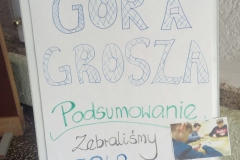 GÓRA
GROSZA
Podsumowanie
Zebraliśmy